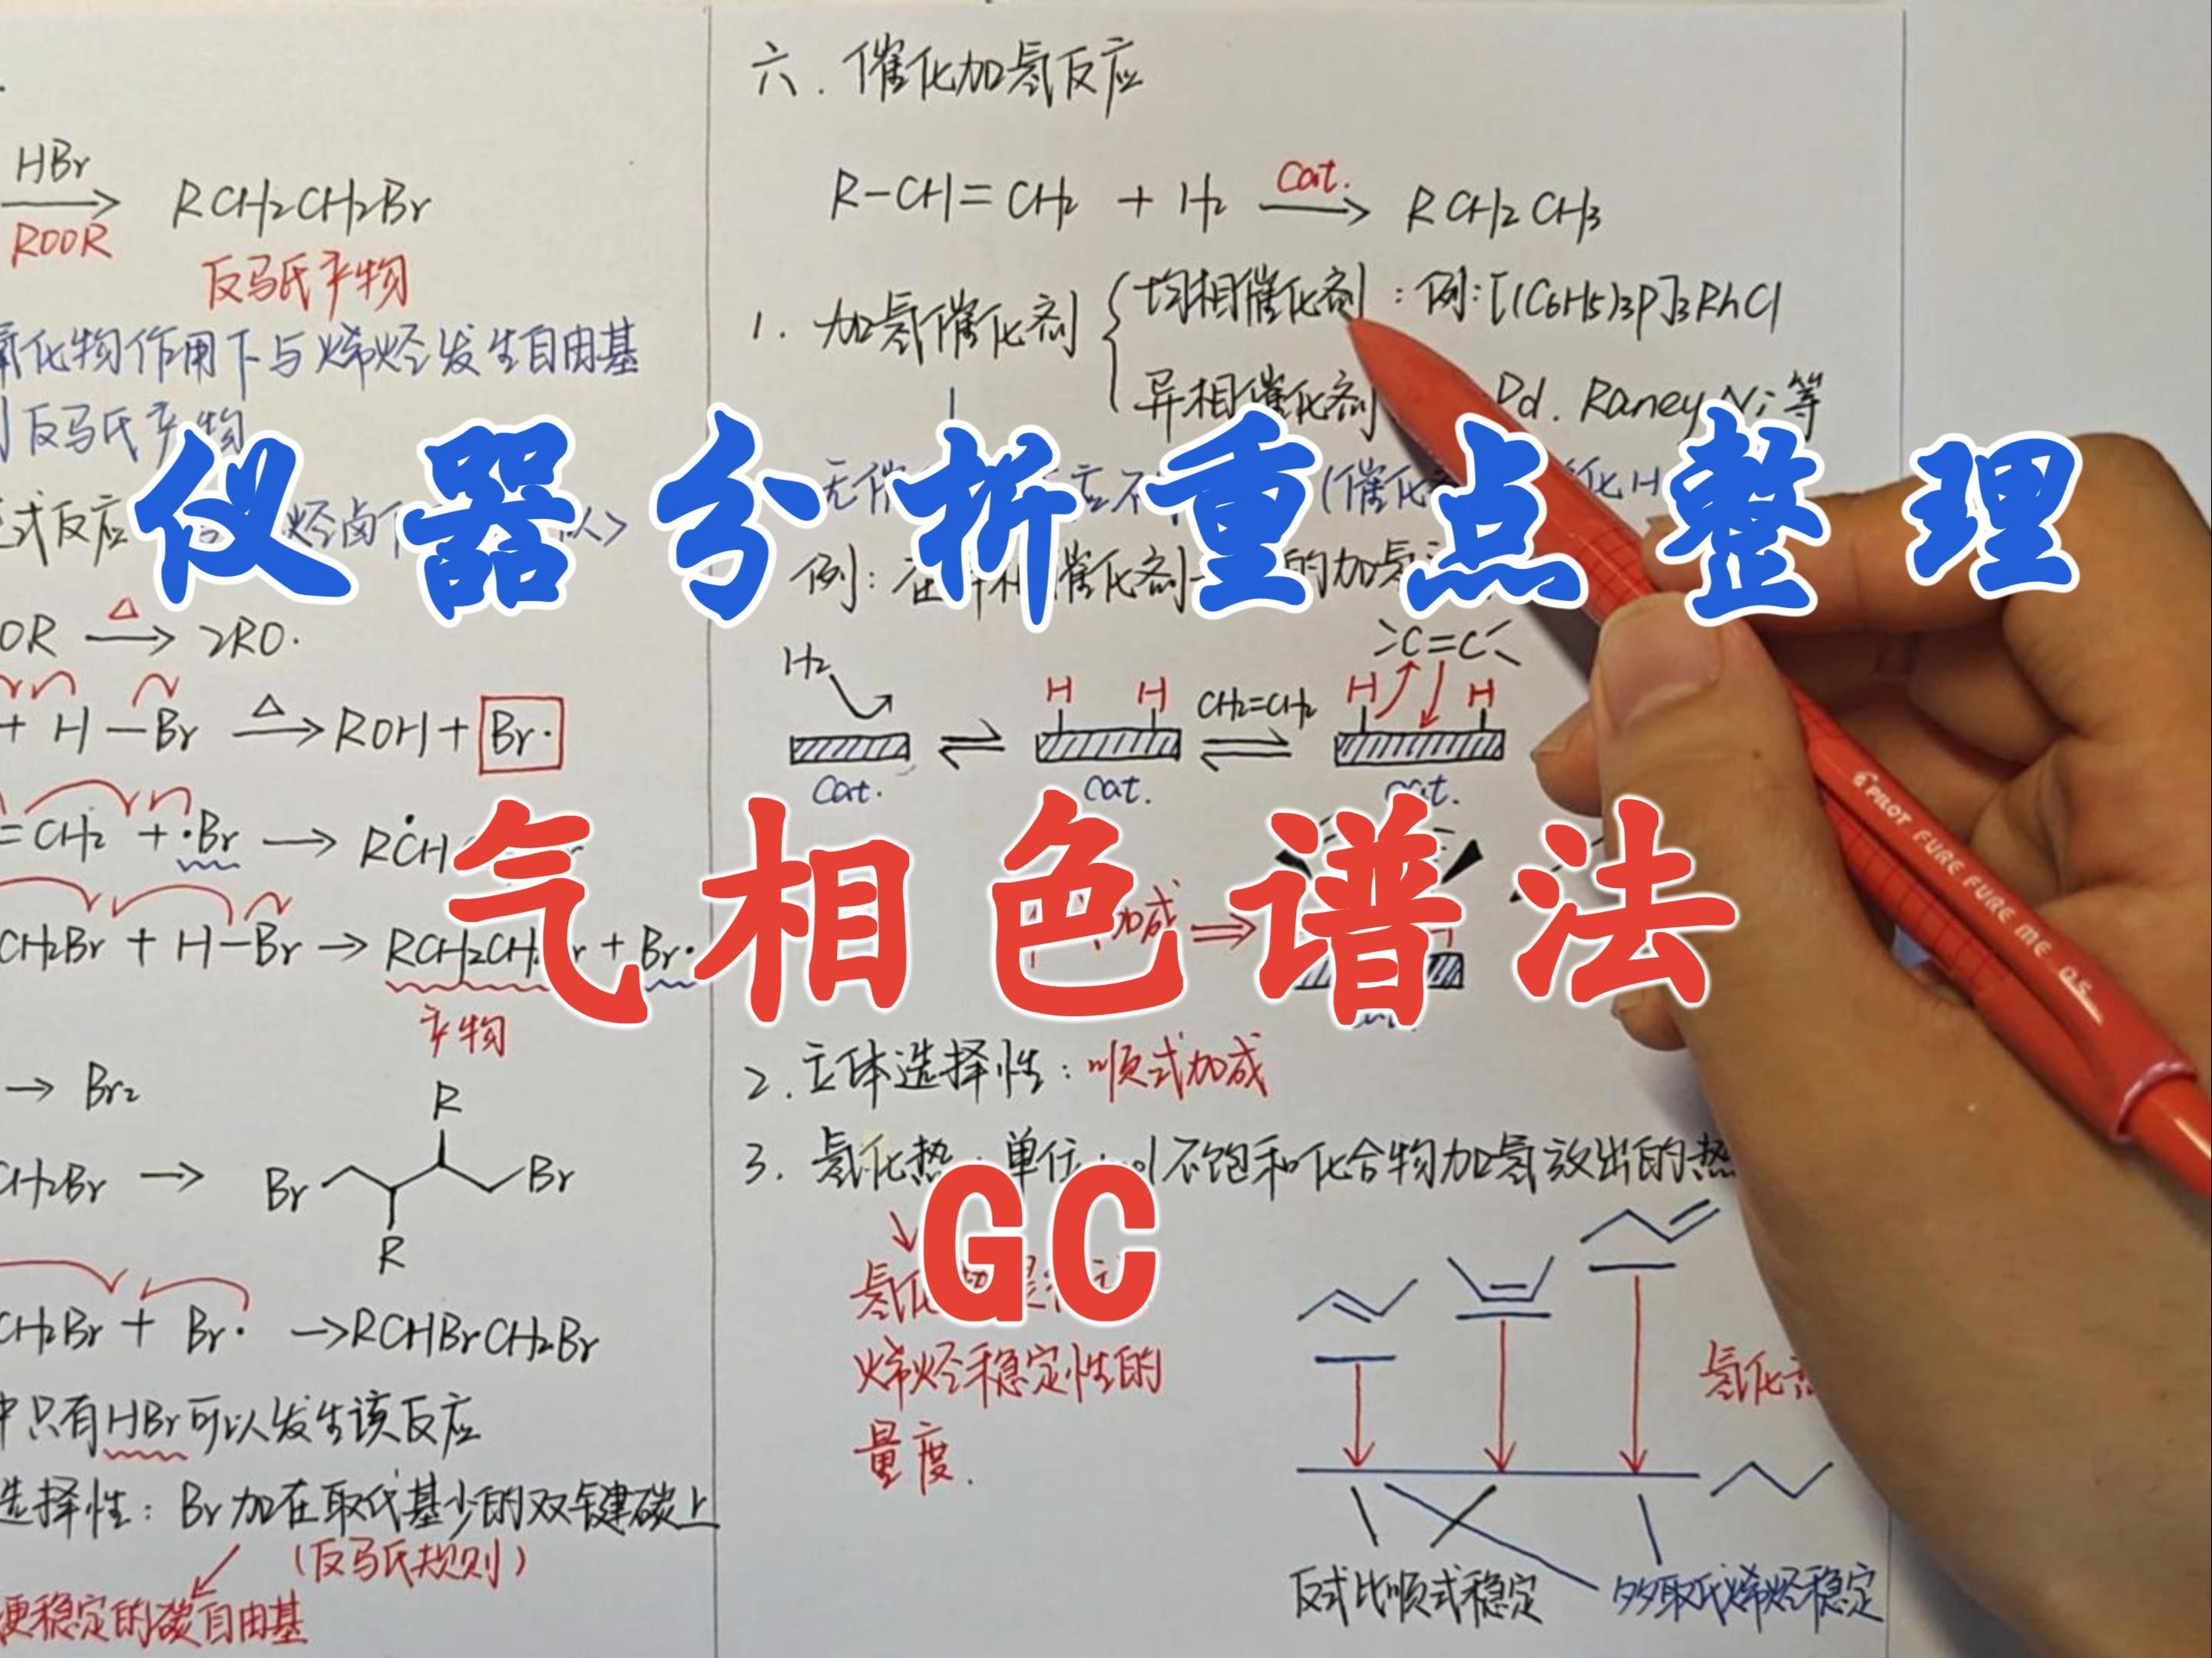 仪器分析重点整理
气相色谱法
GC
HBr
ROOR
RCH2CH2Br
反马氏产物
氧化物作用下与烯烃发生自由基
反马氏产物
式反应
OR △ → 2RO·
+ H—Br △ → ROH + Br·
=CH2 + ·Br → RCH
CH2Br + H—Br → RCH2CH + Br·
产物
→ Br2
CH2Br →
R
Br
Br
R
CH2Br + Br· → RCHBrCH2Br
只有HBr可以发生该反应
选择性：Br加在取代基少的双键碳上
（反马氏规则）
稳定的碳自由基
六．催化加氢反应
R-CH=CH2 + H2 Cat. → RCH2CH3
1．加氢催化剂
均相催化剂：例：[(C6H5)3P]3RhCl
异相催化剂 Pd．Raney Ni等
例：
的加氢
H2
H H
CH2=CH2
C=C
H H
Cat.
Cat.
Cat.
加成
2．立体选择性：顺式加成
3．氢化热 单位 mol不饱和化合物加氢放出的热
烯烃稳定性的
量度．
氢化
反式比顺式稳定
多取代烯烃稳定
PILOT FURE FURE ME 0.5